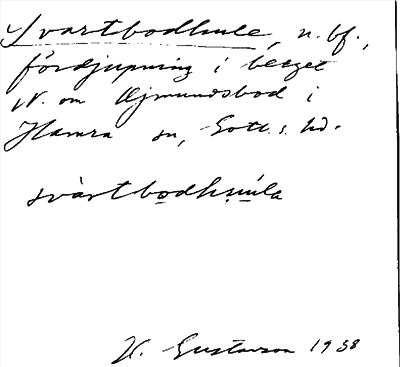 Svartbodhule, n. bf.,
fördjupning i berget
N. om Ajmundsbod i
Hamra sn, Gotl. s. hd.
svàrtbodhúla
H. Gustavson 1938